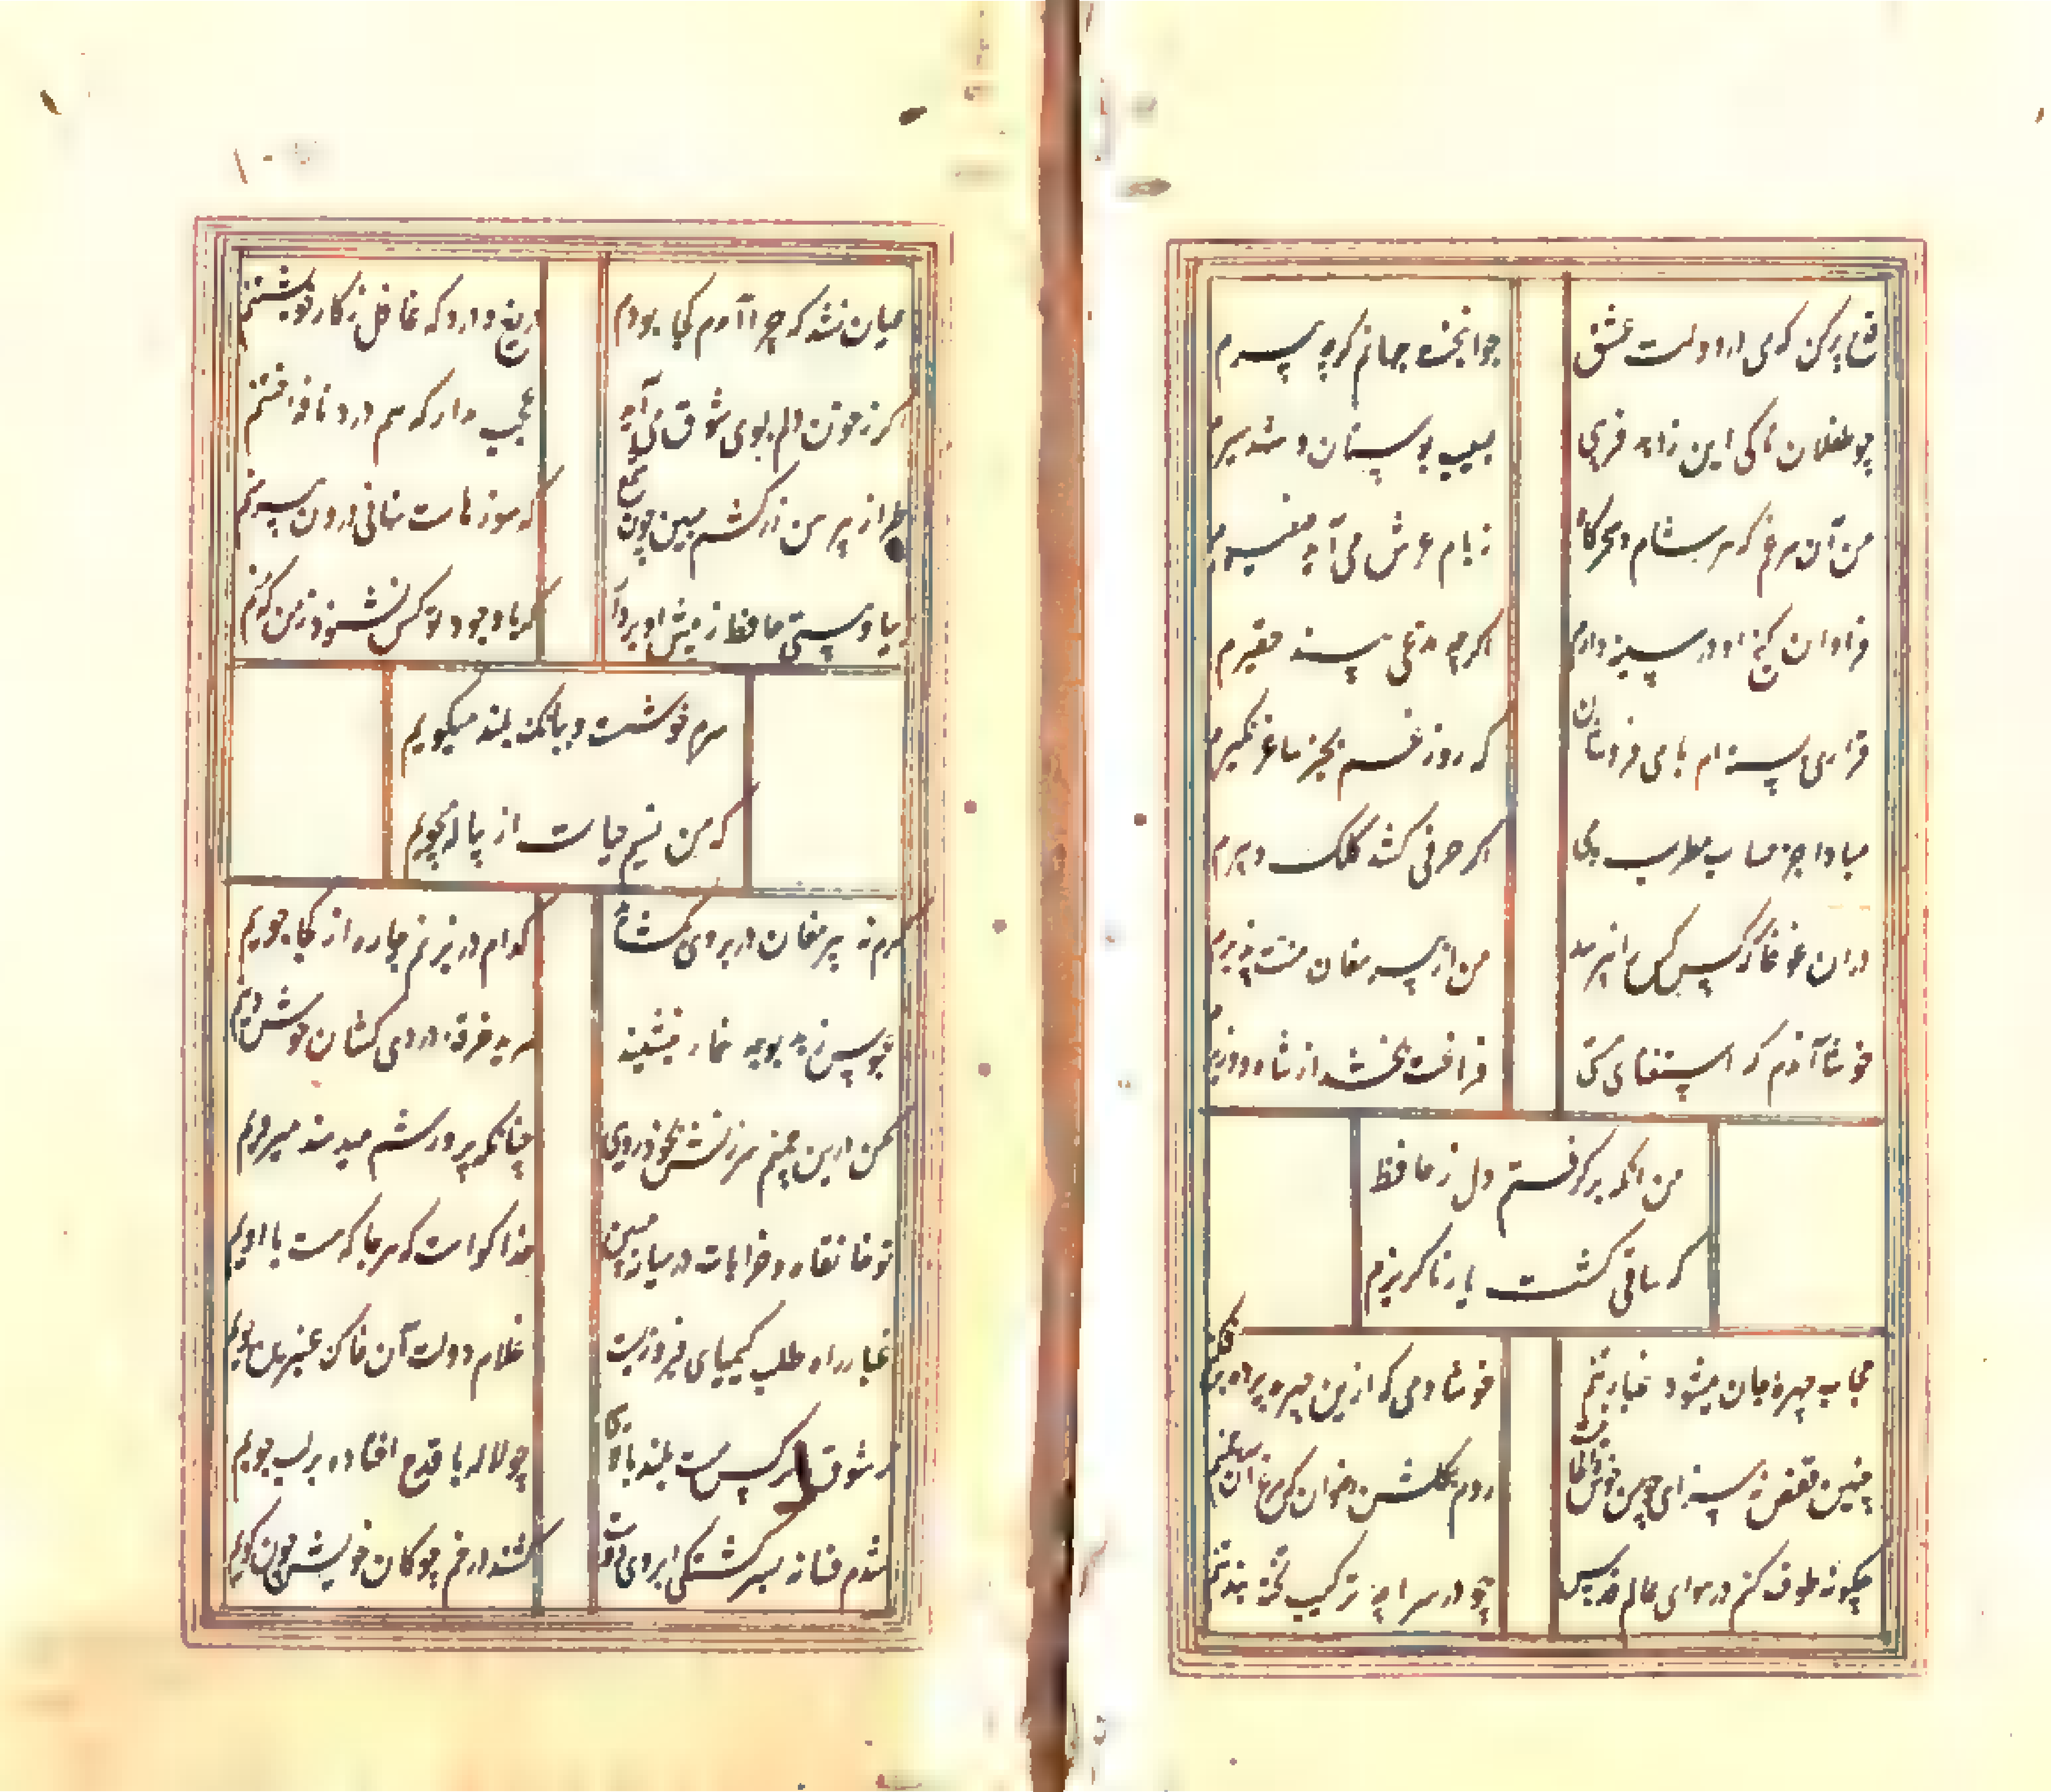 قدح پر کن که من از دولت عشق
جوانبخت جهانم کرچه پیرم
چو طفلان تا کی این زاهد فریبی
بسیب بوستان و شهد و شیرم
من آن مرغم که هر شام و سحرکاه
ز بام عرش می آید صفیرم
فراوان کنج او در سینه دارم
اکرچه مدعی بیند حقیرم
قراری بسته ام با می فروشان
که روز غم بجز ساغر نکیرم
مبادا جز حساب مطرب و می
اکر حرفی کشد کلک دبیرم
دران غوغا که کس کس را نپرسد
من از پیر مغان منت پذیرم
خوشا آندم که استغنای مستی
فراغت بخشد از شاه و وزیرم
من انکه برکرفتم دل ز حافظ
که ساقی کشت یار ناکزیرم
حجاب چهره جان میشود غبار تنم
خوشا دمی که ازین چهره پرده برفکنم
چنین قفس نه سزای چو من خوش الحانست
روم بکلشن رضوان که مرغ آن چمنم
چکونه طوف کنم در هوای عالم قدس
چو در سراچه ترکیب تخته بند تنم
عیان نشد که چرا آمدم کجا بودم
دریغ و درد که غافل ز کار خویشتنم
اکر ز خون دلم بوی شوق می آید
عجب مدار که هم درد نافه ختنم
طراز پیرهن زرکشم مبین چون شمع
که سوزهاست نهانی درون پیرهنم
بیا و هستی حافظ ز پیش او بردار
که با وجود تو کس نشنود ز من که منم
سرم خوشست و ببانک بلند میکویم
که من نسیم حیات از پیاله میجویم
کرم نه پیر مغان در بروی بکشاید
کدام در بزنم چاره از کجا جویم
عبوس زهد بوجه خمار ننشیند
مرید خرقه دردی کشان خوش خویم
مکن درین چمنم سرزنش بخودرویی
چنانکه پرورشم میدهند میرویم
تو خانقاه و خرابات در میانه مبین
خدا کواست که هر جا که هست با اویم
غبار راه طلب کیمیای بهروزیست
غلام دولت آن خاک عنبرین بویم
ز شوق نرکس مست بلند بالایی
چو لاله با قدح افتاده بر لب جویم
شدم فسانه بسرکشتکی ابروی دوست
کشید در خم چوکان خویش چون کویم